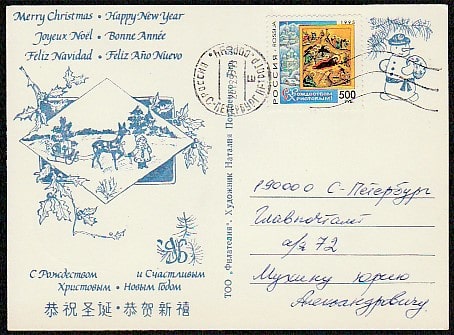 Merry Christmas • Happy New Year
Joyeux Noel • Bonne Année
Feliz Navidad • Feliz Año Nuevo
1995
РОССИЯ
С Рождеством
Христовым!
500
ТОО "Филателия". Художник Наталия
190000 С-Петербург
Главпочтамт
а/я 72
Мухину Юрию
Александровичу
С Рождеством и Счастливым
Христовым • Новым Годом
恭祝圣诞 • 恭贺新禧